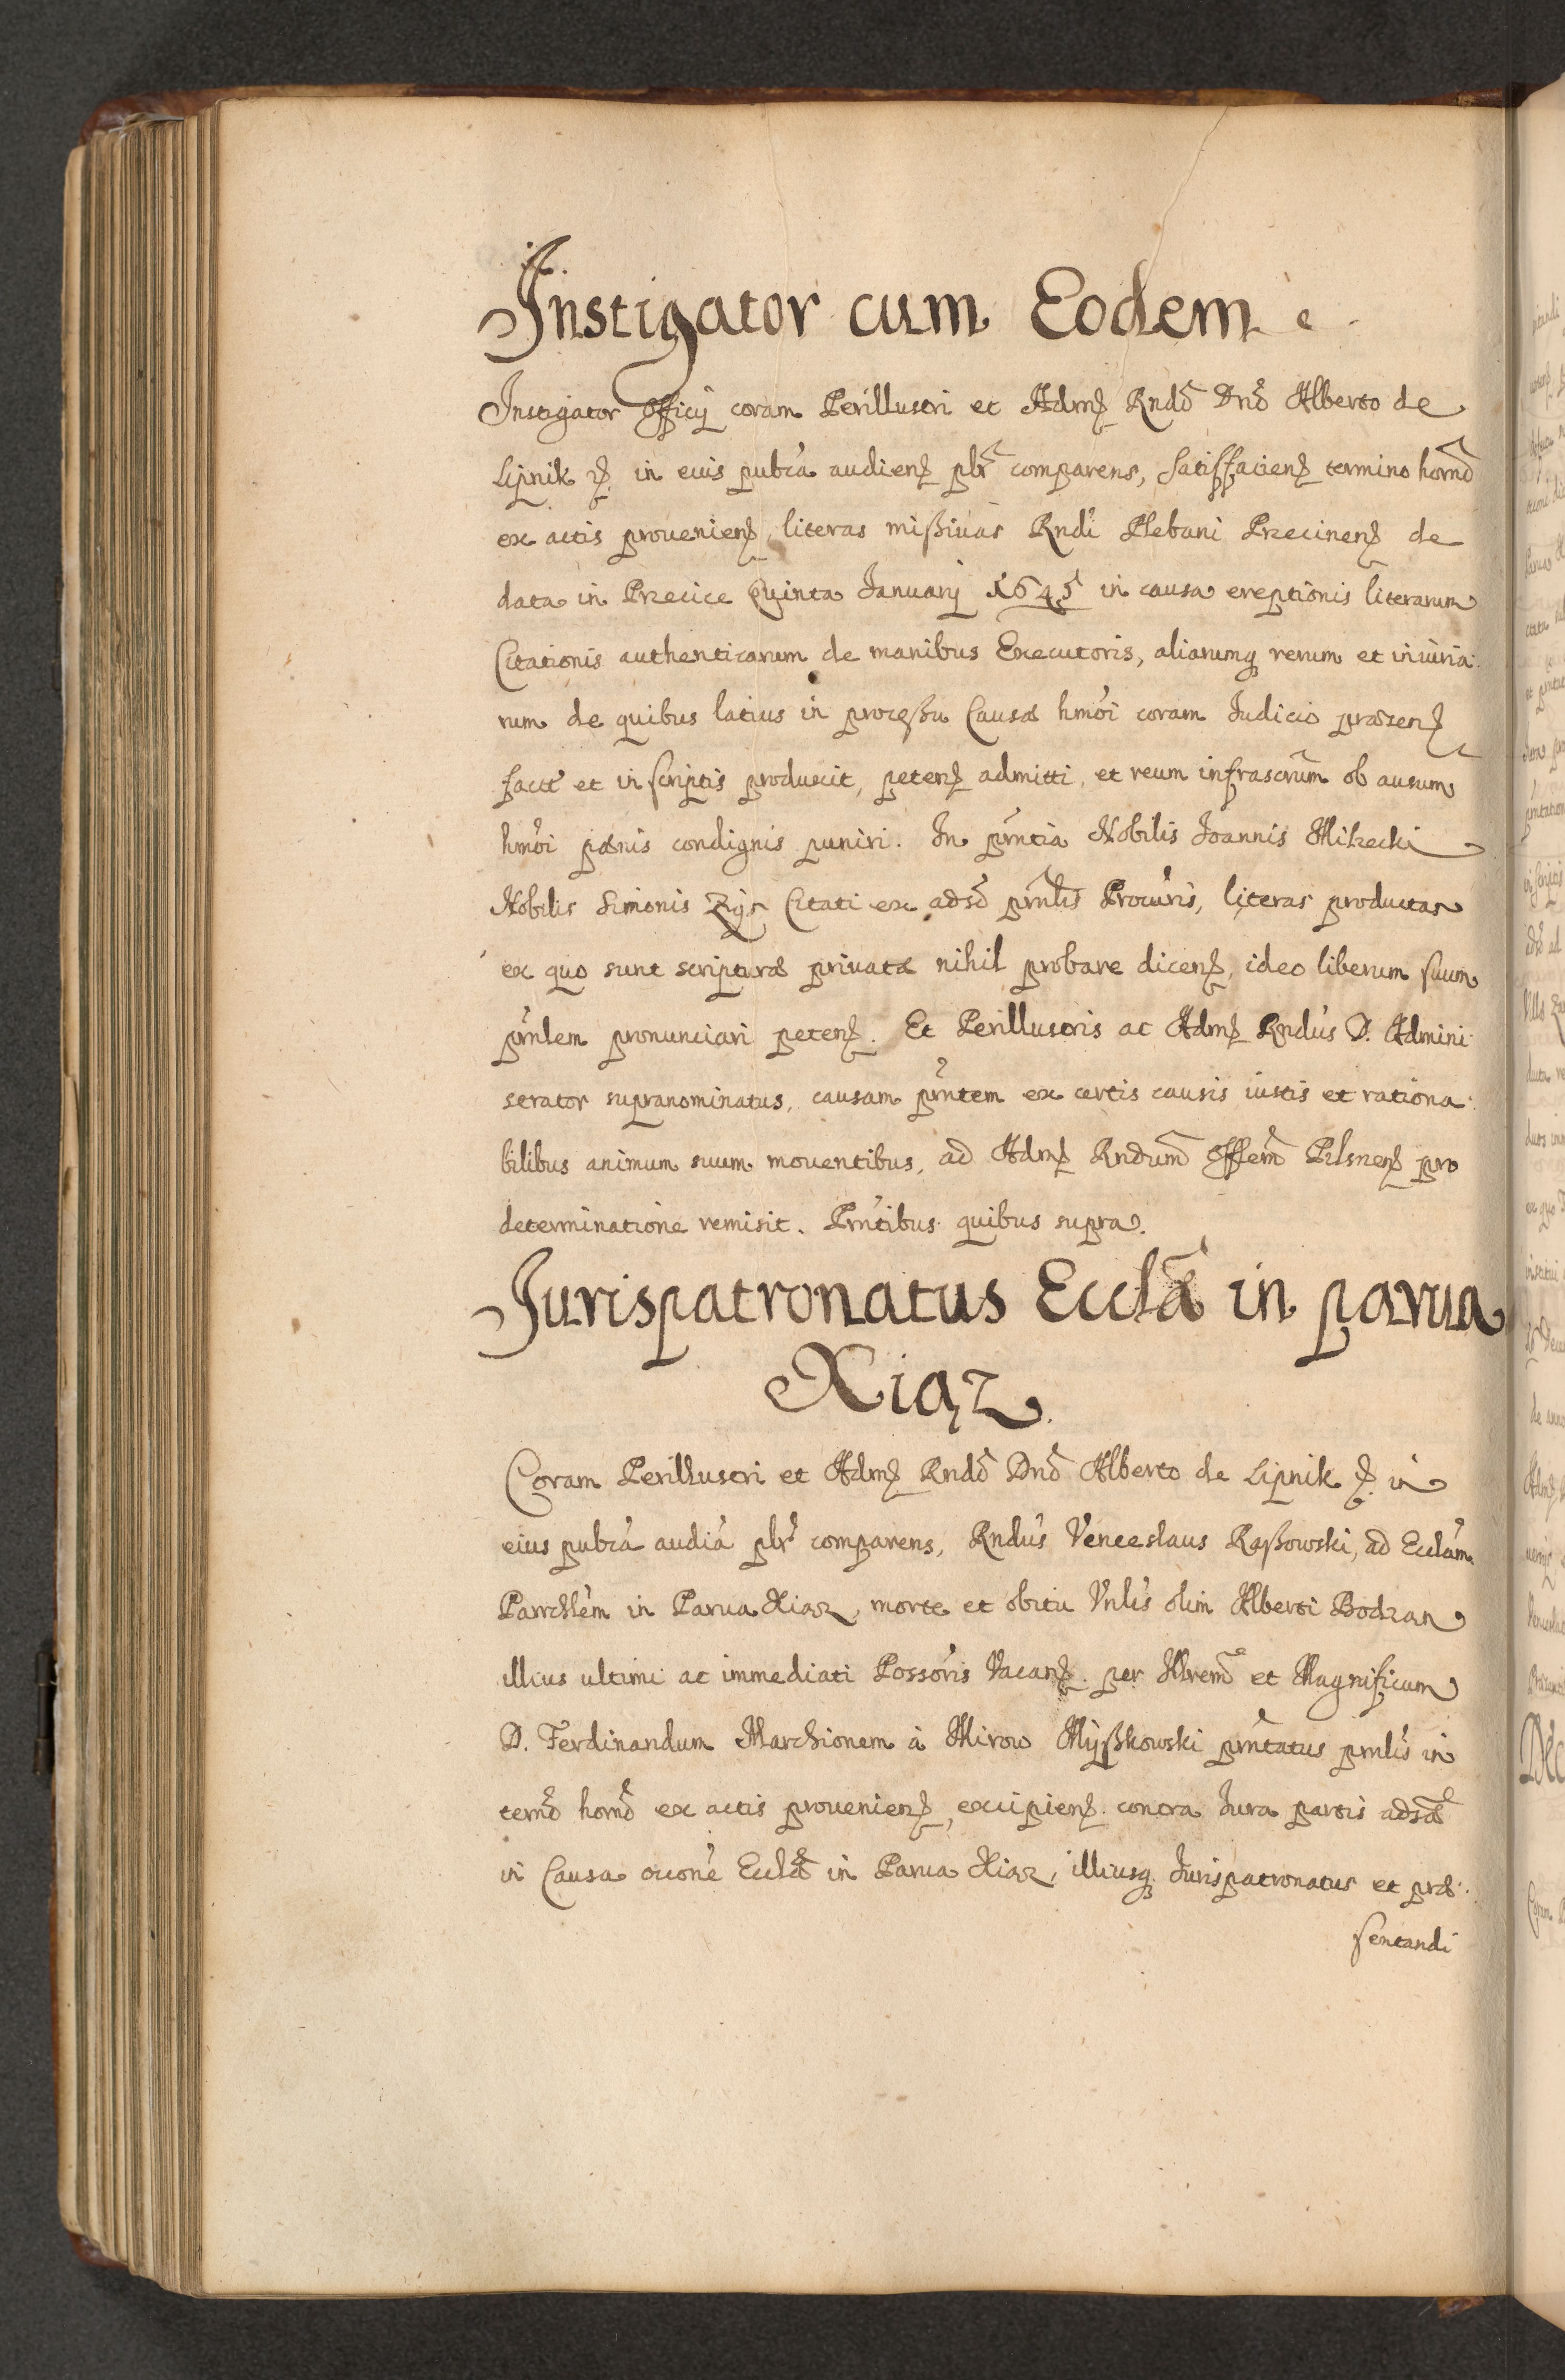 Instigator cum Eodem
Instigator Officij coram Perillustri et Adm̃ Rndo Dno Alberto de
Lipnik in eius pubca audien plr comparens, satisfacien termino horno
ex actis provenien, literas missivas Rndi Plebani Przecinen de
data in Przecice Quinta Januarij 1645 in causa ereptionis literarum
Citationis authenticarum de manibus Executoris, aliarumq rerum et iniuria:
rum de quibus latius in processu Causæ hmoi coram Iudicio præsen
fact et in scriptis produxit, peten admitti, et reum infrascrum ob ausum
hmoi pænis condignis puniri. In prntia Nobilis Ioannis Milecki
Nobilis Simonis Zys Citati ex adso prnlis Procuris, literas productas
ex quo sunt scripturæ privatæ nihil probare dicen, ideo liberum suum
prnlem pronunciari peten. Et Perillustris ac Adm Rndus D. Admini
strator supranominatus, causam prntem ex certis causis iustis et rationa:
bilibus animum suum moventibus, ad Adm Rndum Offlem Pilsnen pro
determinatione remisit. Prntibus quibus supra.
Jurispatronatus Eccla in parua
Xiąz.
Coram Perillustri et Adm Rndo Dno Alberto de Lipnik in
eius pubca audia plr comparens, Rndus Venceslaus Raßowski, ad Ecclam
Parrchlem in Parua Xiąz, morte et obitu Vnlis olim Alberti Bodzan
illius ultimi ac immediati Possoris Vacan. per Illrem et Magnificum
D. Ferdinandum Marchionem à Mirow Myßkowski prntatus prnlis in
termo horno ex actis provenien, excipien contra Iura partis adsæ
in Causa occone Ecclæ in Parua Xiąz, illiusq Iurispatronatus et præ:
sentandi